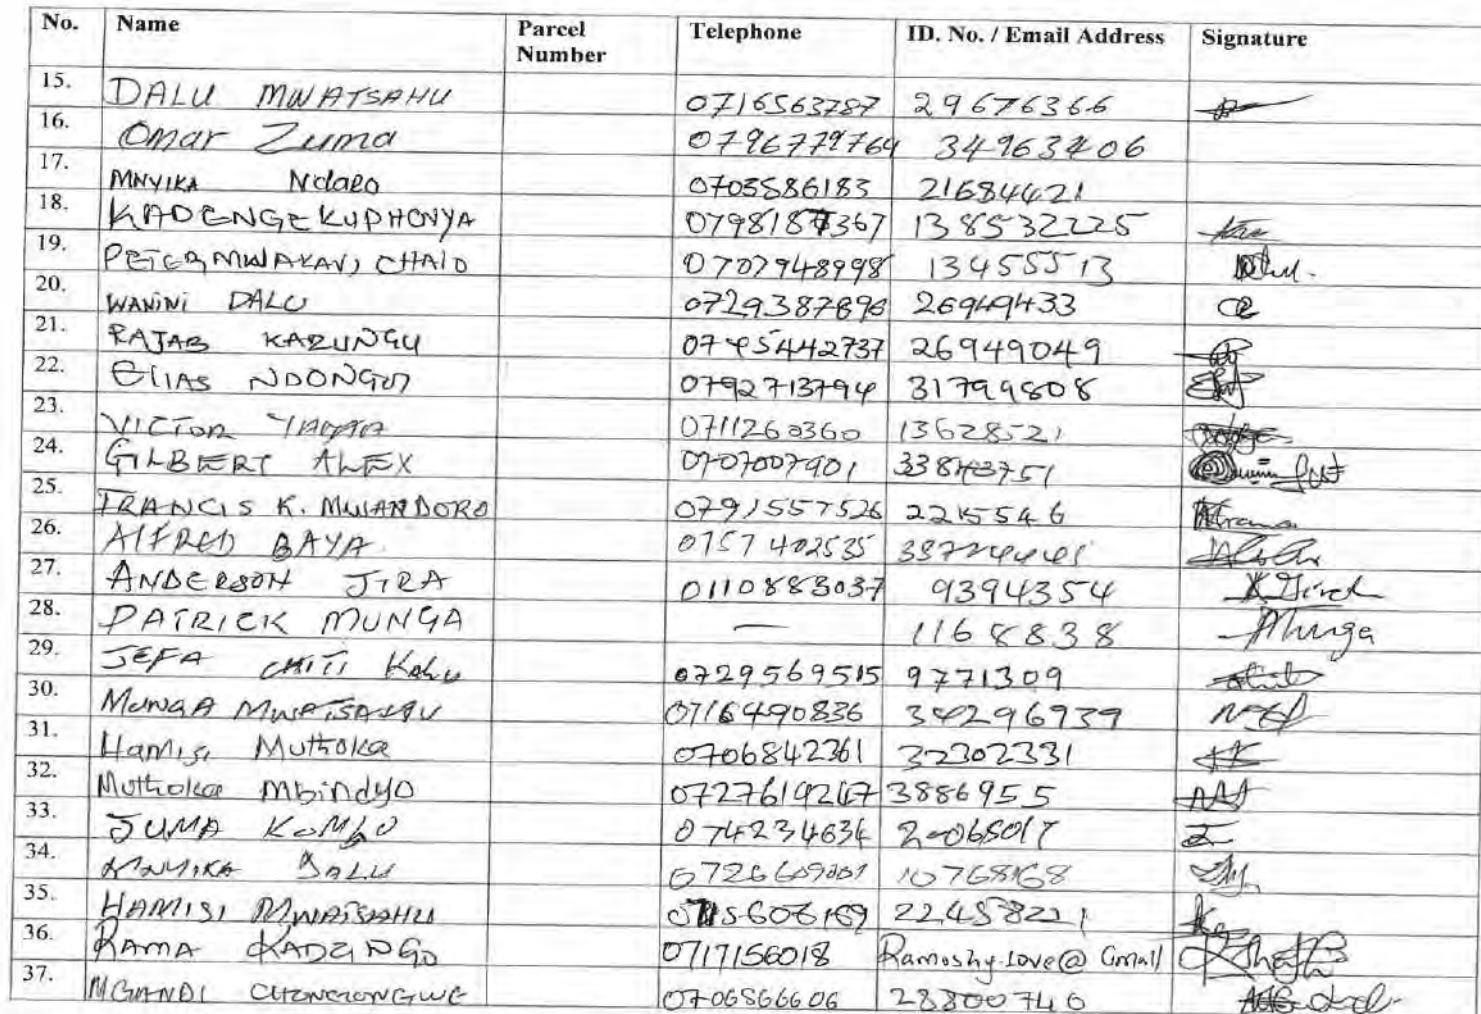 No. Name Parcel Number Telephone ID. No. / Email Address Signature
15. DALU MWATSAHU 0716563787 29676366
16. Omar Zuma 0796779764 34963406
17. MNYIKA Ndaro 0703586183 21684421
18. KADENGE KUPHONYA 0798187367 1385532225
19. PETER MWAKAVI CHAID 0707948998 13455513
20. WANINI DALU 0729387896 26949433
21. RAJAB KARUNGU 0745442737 26949049
22. ELIAS NDONGO 0792713794 31799808
23. VICTOR 0711260360 13628521
24. GILBERT ALEX 0707007901 33843751
25. FRANCIS K. MWANDORO 0791557526 2215546
26. ALFRED BAYA 0757402535
27. ANDERSON JIRA 0110883037 9394354
28. PATRICK MUNGA — 1168838 Munga
29. JEFA CHITI Kalu 0729569515 9771309
30. MUNGA MWATSAHU 0716490836 34296939
31. Hamisi Muthoka 0706842361 32302331
32. Muthoka Mbindyo 0727619247 3886955
33. JUMA KOMBO 074234634 20065017
34. DALU 10768168
35. HAMISI MWATSAHU 0715606169 22458221
36. RAMA KADZINGO 0717156018 Ramoshy.Love@Gmail
37. MGANDI CHONGONGWE 0706866606 28800740